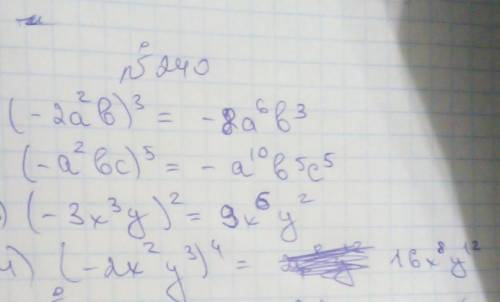 №240
(-2a²b)³ = -8a⁶b³
(-a²bc)⁵ = -a¹⁰b⁵c⁵
) (-3x³y)² = 9x⁶y²
) (-2x²y³)⁴ = 16x⁸y¹²